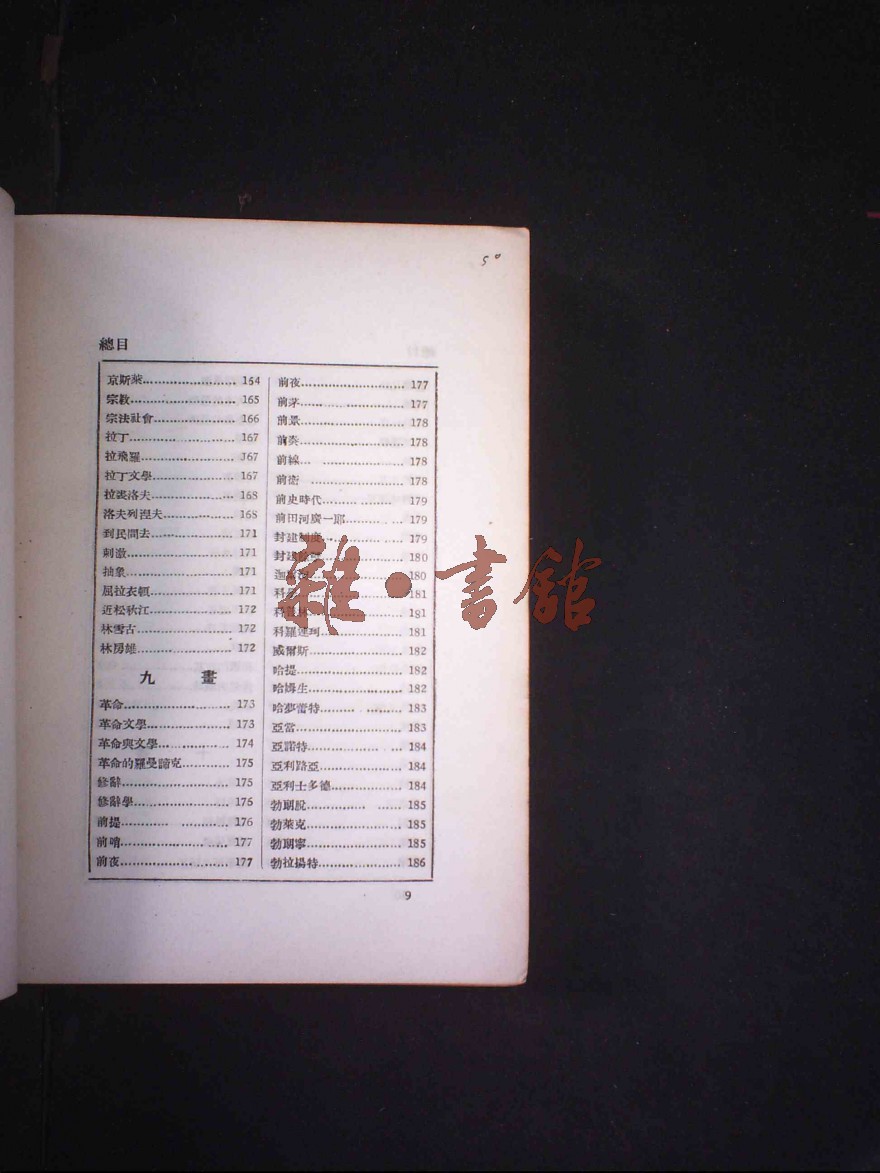 50
總目
京斯萊........................ 164
宗教........................ 165
宗法社會........................ 166
拉丁........................ 167
拉飛羅........................ 167
拉丁文學........................ 167
拉裘洛夫........................ 168
洛夫列涅夫........................ 168
到民間去........................ 171
刺激........................ 171
抽象........................ 171
屈拉衣頓........................ 171
近松秋江........................ 172
林雪古........................ 172
林房雄........................ 172
九 畫
革命........................ 173
革命文學........................ 173
革命與文學........................ 174
革命的羅曼諦克........................ 175
修辭........................ 175
修辭學........................ 176
前提........................ 176
前哨........................ 177
前夜........................ 177
前夜........................ 177
前茅........................ 177
前景........................ 178
前奏........................ 178
前線........................ 178
前衛 ........................ 178
前史時代........................ 179
前田河廣一郎........................ 179
封建制度........................ 179
封建 ........................ 180
迦 ........................ 180
科 ........................ 181
科 ........................ 181
科羅連珂........................ 181
威爾斯........................ 182
哈提........................ 182
哈姆生........................ 182
哈夢雷特........................ 183
亞當........................ 183
亞諾特........................ 184
亞利路亞........................ 184
亞利士多德........................ 184
勃朗脫........................ 185
勃萊克........................ 185
勃朗寧........................ 185
勃拉揚特........................ 186
9
雜·書館